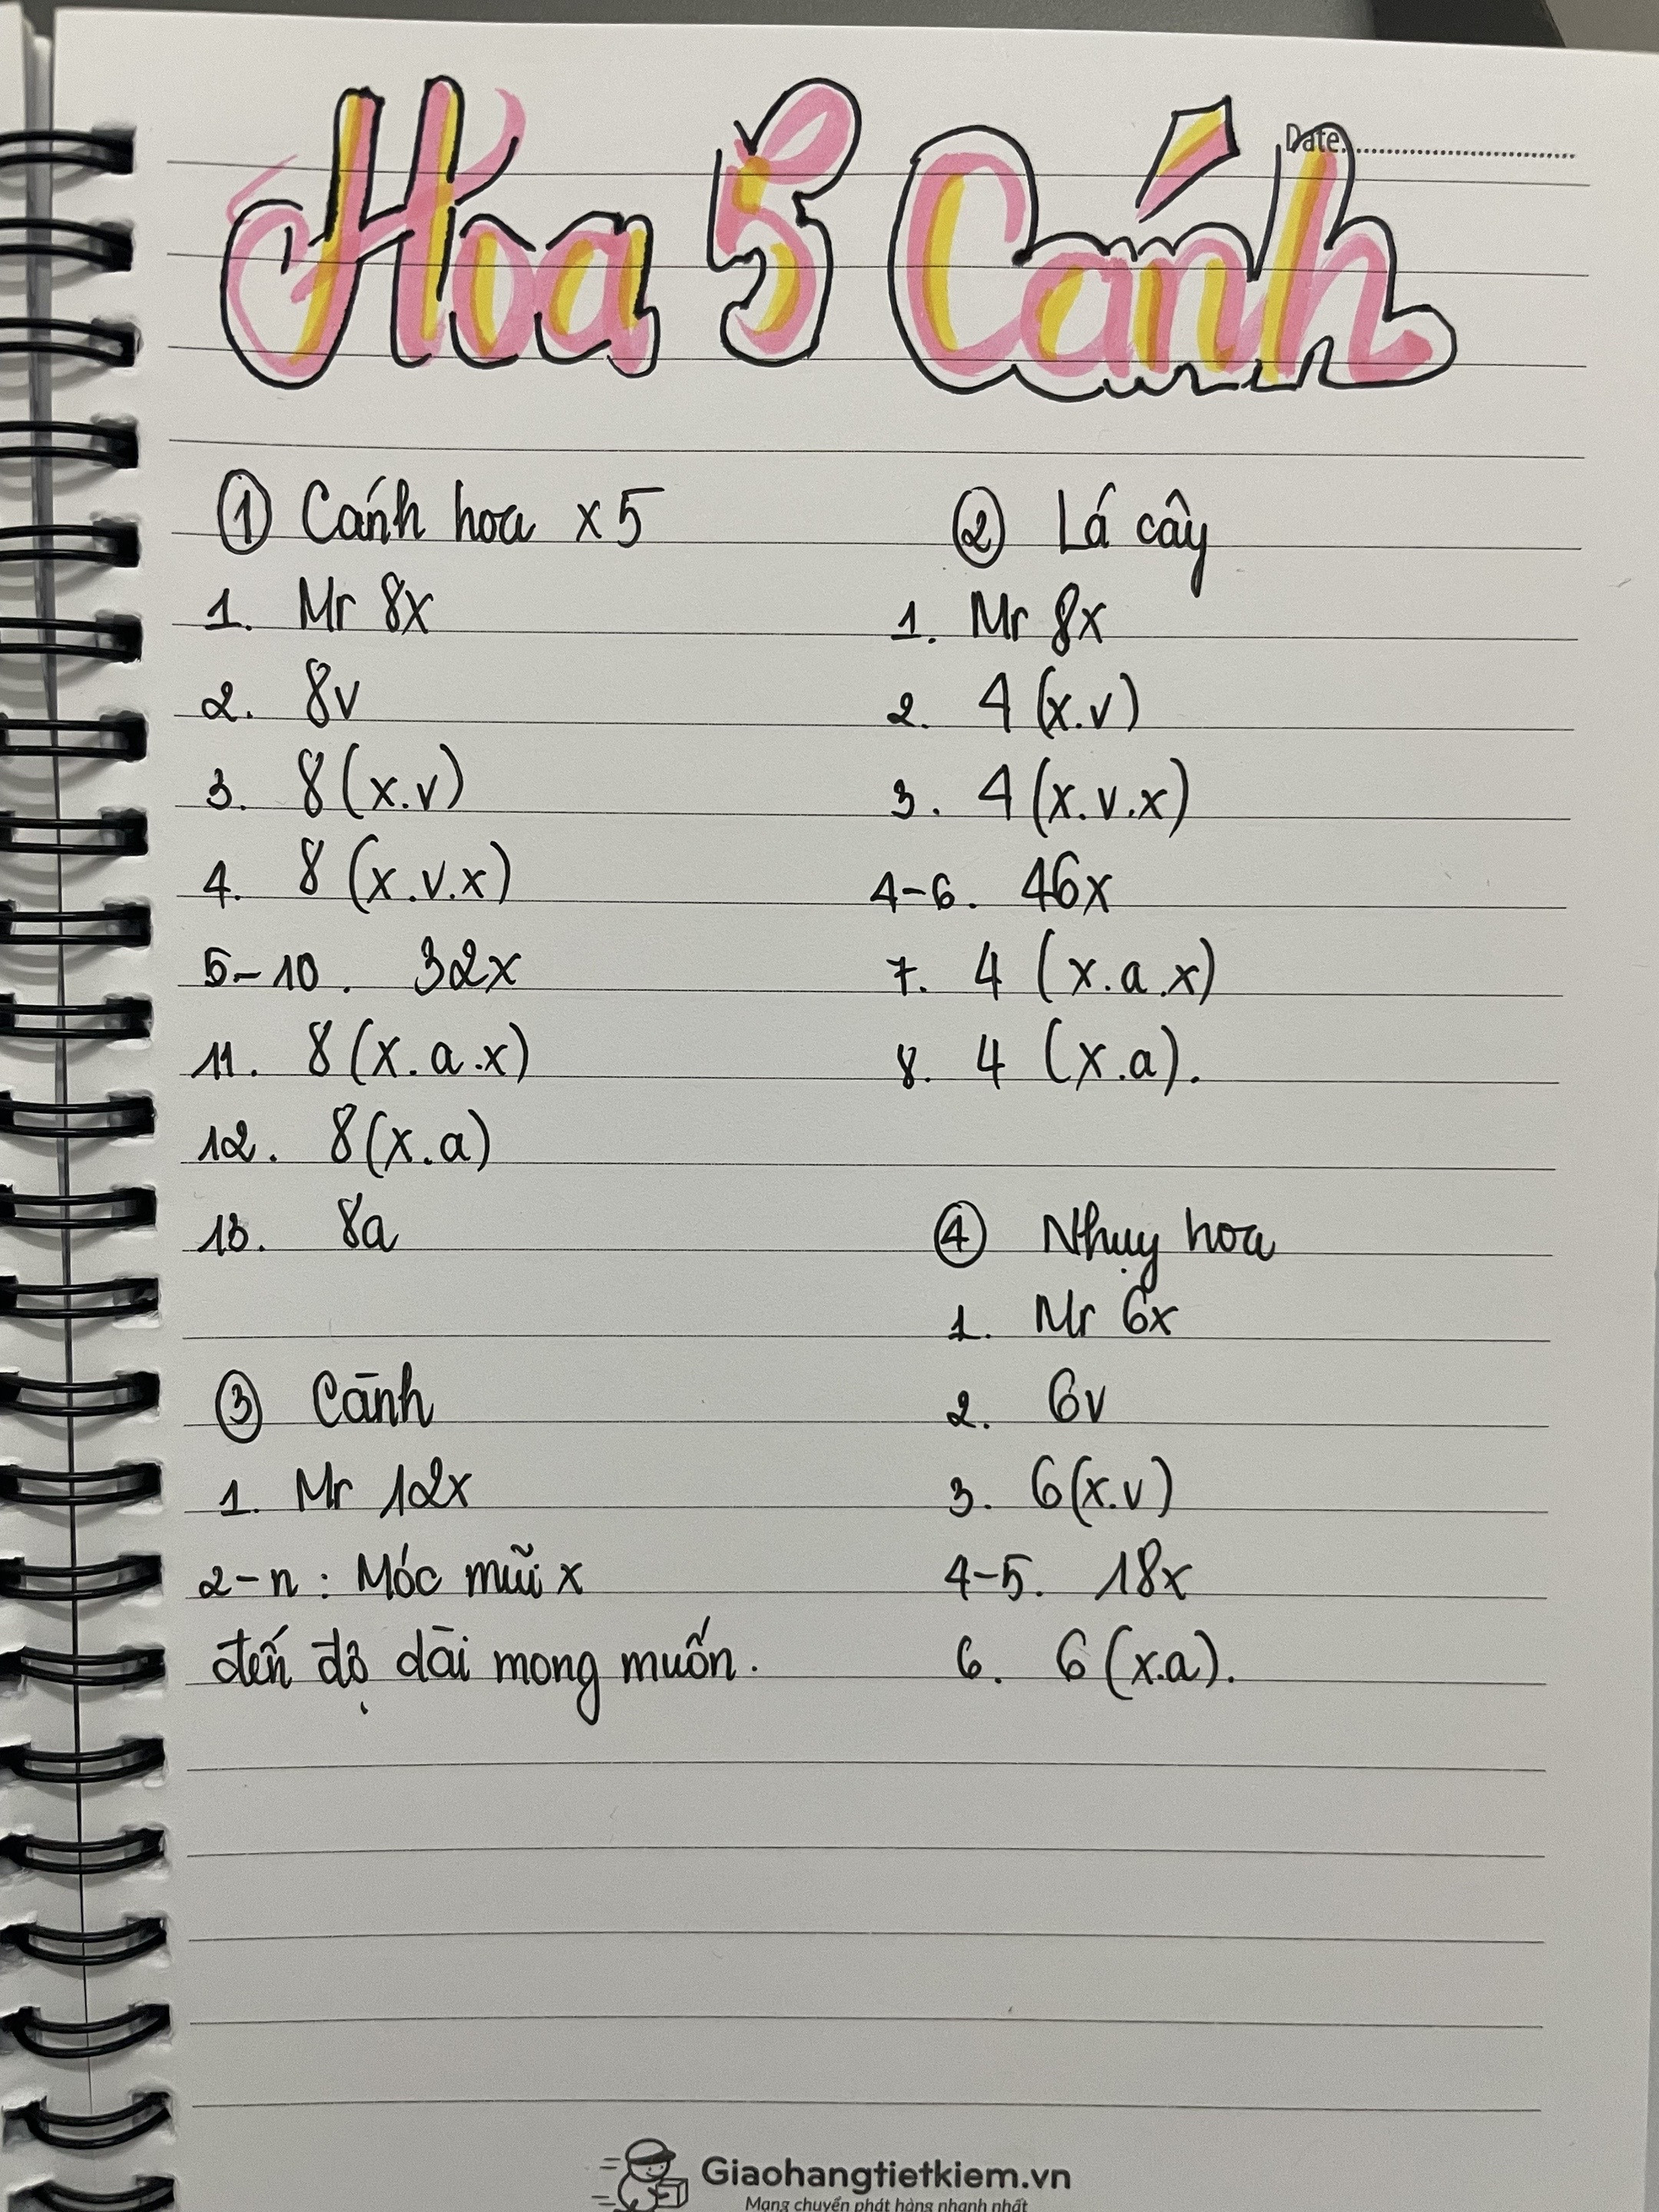 Hoa 5 Cánh
Date
① Cánh hoa x5
1. Mr 8x
2. 8v
3. 8(x.v)
4. 8 (x.v.x)
5-10. 32x
11. 8(x.a.x)
12. 8(x.a)
13. 8a
② Lá cây
1. Mr 8x
2. 4 (x.v)
3. 4 (x.v.x)
4-6. 46x
7. 4 (x.a.x)
8. 4 (x.a).
③ Cành
1. Mr 12x
2-n: Móc mũi x
đến độ dài mong muốn.
④ Nhụy hoa
1. Mr 6x
2. 6v
3. 6(x.v)
4-5. 18x
6. 6 (x.a).
Giaohangtietkiem.vn
Mạng chuyển phát hàng nhanh nhất